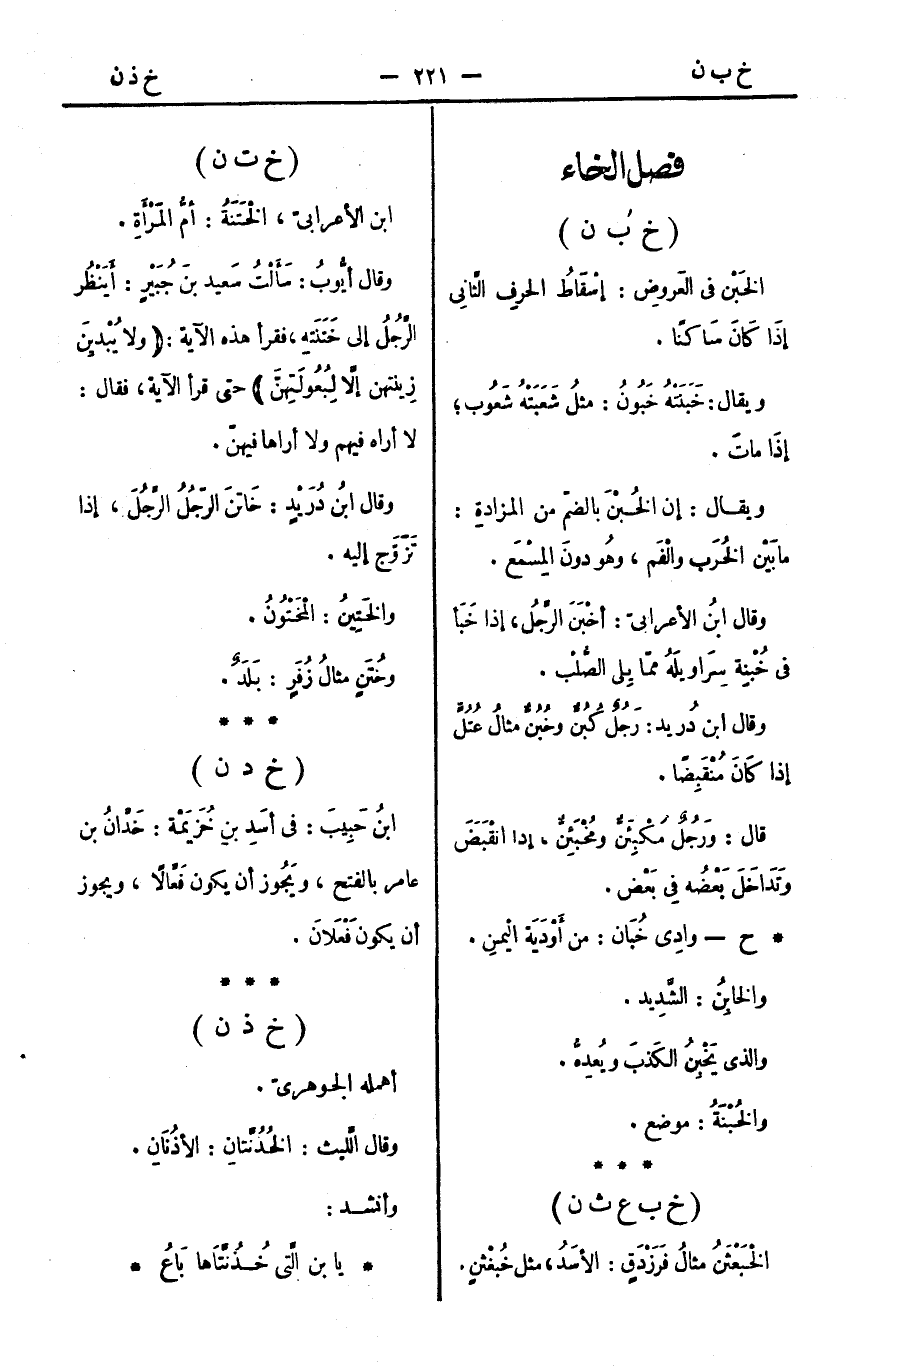 خ ب ن
— ٢٢١ —
خ ذ ن
فصل الخاء
( خ ب ن )
الخَبْن فى العَروضِ : إسْقاطُ الحرفِ الثَّانِى
إذَا كَانَ ساكنًا .
ويقال : خَبَنَتْهُ خَبُونُ : مثلُ شَعَبَتْهُ شَعُوب ؛
إذَا ماتَ .
ويقــال : إن الخُــبْنَ بالضمّ من المزادةِ :
مابَيْن الخُرَبِ والْفَم ، وهُو دونَ المِسْمَع .
وقال ابنُ الأعرابىّ : أخْبَنَ الرَّجُل ، إذا خَبَأَ
فى خُبْنةِ سِرَاويلَهُ ممّا يِلى الصُّلْب .
وقال ابن دُريد : رَجُلٌ كُبُنٌّ وخُبُنٌّ مثالُ عُتُلٍّ
إذا كَانَ مُنْقَبِضًا .
قال : ورَجُلٌ مُكْبِئِنٌّ ومُخْبَئِنٌّ ، إذا انْقَبَضَ
وتَدَاخَلَ بَعْضُه فِى بَعْض .
* ح — وادِى خُبَان : من أَوْدَيَة اليْمنِ .
والخابِنُ : الشَّدِيد .
والذى يَخْبِنُ الكَذبَ ويُعدِهُّ .
والخُبْنَةُ : موضع .
* * *
( خ ب ع ث ن )
الخَبَعْثَنُ مثالُ فَرَزْدَقٍ : الأسَدُ ، مثل خُبَعْثِنٍ .
( خ ت ن )
ابن الأعرابىّ ، الخَتَنَةُ : أمُّ المَرْأَةِ .
وقال أيُّوبُ : سَأَلْتُ سَعيد بنَ جُبَيْرٍ : أَيَنْظُر
الرَّجُلُ إلى خَتَنَتِهِ ، فقرأ هذه الآية : ﴿ ولا يُبْدِينَ
زِينتهن إلَّا لِبُعُولَتِهنَّ ﴾ حتى قرأ الآية ، فقال :
لا أراه فيهم ولا أراها فيهنّ .
وقال ابنُ دُرَيْدٍ : خَاتنَ الرّجُلُ الرَّجُلَ ، إذا
تَزَّوَّجَ إليه .
والخَتِينُ : المَخْتُونُ .
وخُتَنٍ مثالُ زُفَرٍ : بَلَدٌ .
* * *
( خ د ن )
ابنُ حَبِيبَ : فى أسَدِ بنِ خُزَيَمْة : خَدَّانُ بن
عامر بالفتح ، ويَجُوز أن يكون فَعَّالًا ، ويجوز
أن يكون فَعْلَانَ .
* * *
( خ ذ ن )
أهمله الجوهرىّ .
وقال اللَّيث : الخُذُنَّتانِ : الأذُنَانِ .
وأنشــد :
* يا بن الَّتى خُــذُنَّتَاها بَاعُ *